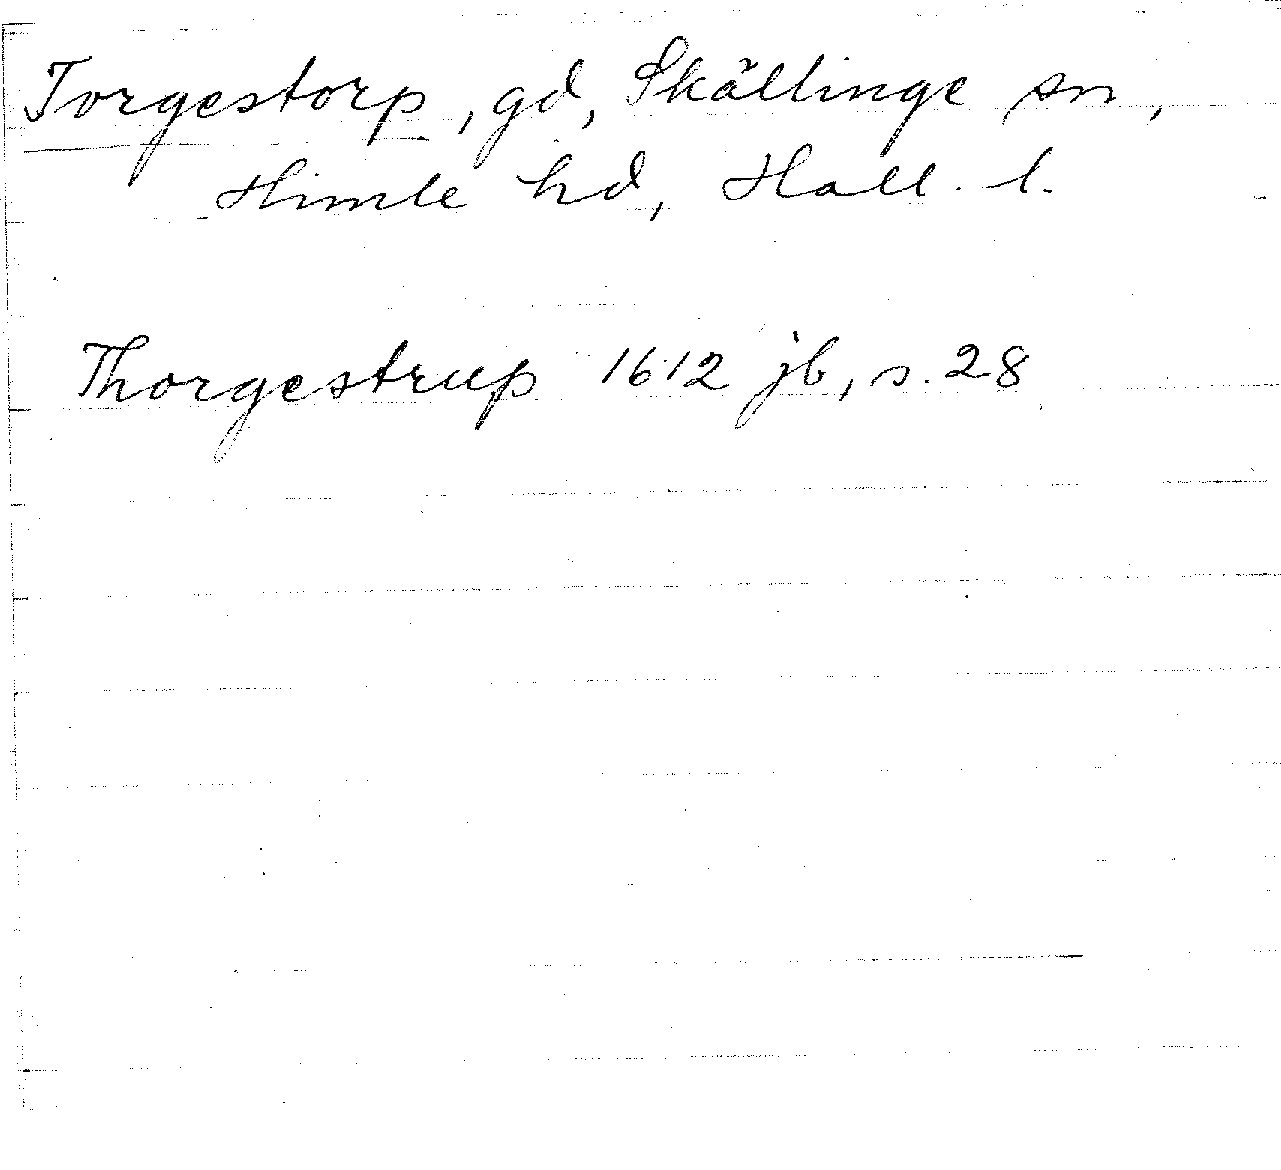 Torgestorp, gd, Skällinge sn,
Himle hd, Hall. l.
Thorgestrup 1612 jb, s. 28